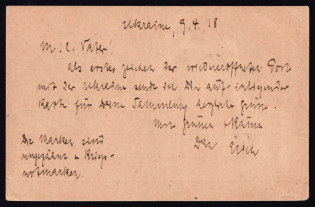 Ukraine, 9.4.18
M. l. Vater!
Als erstes Zeichen der wiedereröffneten Post
mit der Ukraine sende ich Dir auf inliegender
Karte für Deine Sammlung herzliche Grüße.
Mit Grüßen + Küssen
Dein
Die Marken sind
ungezähnt + Kriegs-
notmarken.